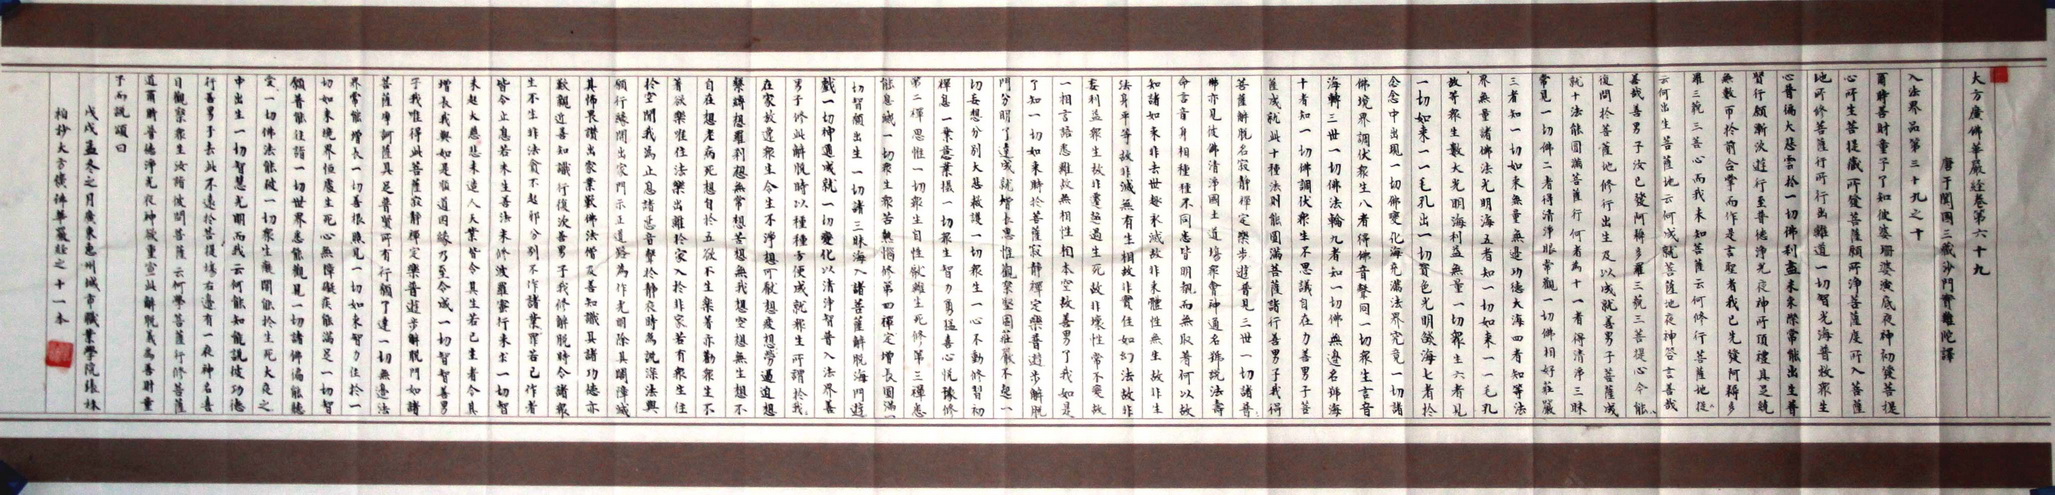 大方廣佛華嚴經卷第六十九
唐于闐國三藏沙門實叉難陀譯
入法界品第三十九之十
爾時善財童子了知彼婆珊婆演底夜神初發菩提
心所生菩提藏所發菩薩願所淨菩薩度所入菩薩
地所修菩薩行所行出離道一切智光海普救眾生
心普徧大悲雲於一切佛剎盡未來際常能出生普
賢行願漸次遊行至普德淨光夜神所頂禮其足繞
無數帀於前合掌而作是言聖者我已先發阿耨多
羅三藐三菩心而我未知菩薩云何修行菩薩地
云何出生菩薩地云何成就菩薩地夜神答言善哉
善哉善男子汝已發阿耨多羅三藐三菩提心今能
復問於菩薩地修行出生及以成就善男子菩薩成
就十法能圓滿菩薩行何者為十一者得清淨三昧
常見一切佛二者得清淨眼常觀一切佛相好莊嚴
三者知一切如來無量無邊功德大海四者知等法
界無量諸佛法光明海五者知一切如來一一毛孔
放等眾生數大光明海利益無量一切眾生六者見
一切如來一一毛孔出一切寶色光明燄海七者於
念念中出現一切佛變化海充滿法界究竟一切諸
佛境界調伏眾生八者得佛音聲同一切眾生言音
海轉三世一切佛法輪九者知一切佛無邊名號海
十者知一切佛調伏眾生不思議自在力善男子菩
薩成就此十種法則能圓滿菩薩諸行善男子我得
菩薩解脫名寂靜禪定樂步遊普見三世一切諸
佛亦見彼佛清淨國土道場眾會神通名號說法壽
命言音身相種種不同悉皆明覩而無取著何以故
知諸如來非去世趣永滅故非來體性無生故非生
法身平等故非滅無有生相故非實住如幻法故非
妄利益眾生故非遷超過生死故非壞性常不變故
一相言語悉離故無相性相本空故善男子我如是
了知一切如來時於菩薩寂靜禪定樂普遊步解脫
門分明了達成就增長思惟觀察堅固莊嚴不起一
切妄想分別大悲救護一切眾生一心不動修習初
禪息一業意業攝一切眾生智力勇猛喜心悅豫修
第二禪思惟一切眾生自性猒離生死修第三禪悉
能息滅一切眾生眾苦熱惱修第四禪定增長圓滿一
切智願出生一切諸三昧海入諸菩薩解脫海門遊
戲一切神通成就一切變化以清淨智普入法界善
男子修此解脫時以種種方便成就眾生所謂於我
在家放逸眾生令生不淨想可猒想疲想勞逼迫想
繫縛想羅剎想無常想苦想無我想空想無生想不
自在想老病死想自於五欲不生樂著亦勸眾生不
著欲樂唯住法樂出離於家入於非家若有眾生住
於空閒我為止息諸惡音聲於靜夜時為說深法與
順行緣開出家門示正道路為作光明除其闇障滅
其怖畏讚出家業歎佛法僧及善知識具諸功德亦
歎親近善知識行復次善男子我修解脫時令諸眾
生不生非法貪不起邪分別不作諸業罪若已作者
皆令止息若未生善法未修波羅蜜行未求一切智
未起大慈悲未造人天業皆令其生若已生者令其
增長我與如是順道因緣乃至令成一切智智善男
子我唯得此菩薩寂靜禪定樂普遊步解脫門如諸
菩薩摩訶薩具足普賢所有行願了達一切無邊法
界常能增長一切善根照見一切如來智力住於一
切如來境界恒處生死心無障礙疾能滿足一切智
願普能往詣一切世界悉能觀見一切諸佛徧能聽
受一切佛法能破一切眾生癡闇能於生死大夜之
中出生一切智慧光明而我云何能知能說彼功德
行善男子去此不遠於菩提場右邊有一夜神名喜
目觀察眾生汝詣彼問菩薩云何學菩薩行修菩薩
道爾時普德淨光夜神欲重宣此解脫義為善財童
子而說頌曰
戊戌孟冬之月廣東惠州城市職業學院張林
柏抄大方廣佛華嚴經之十一本